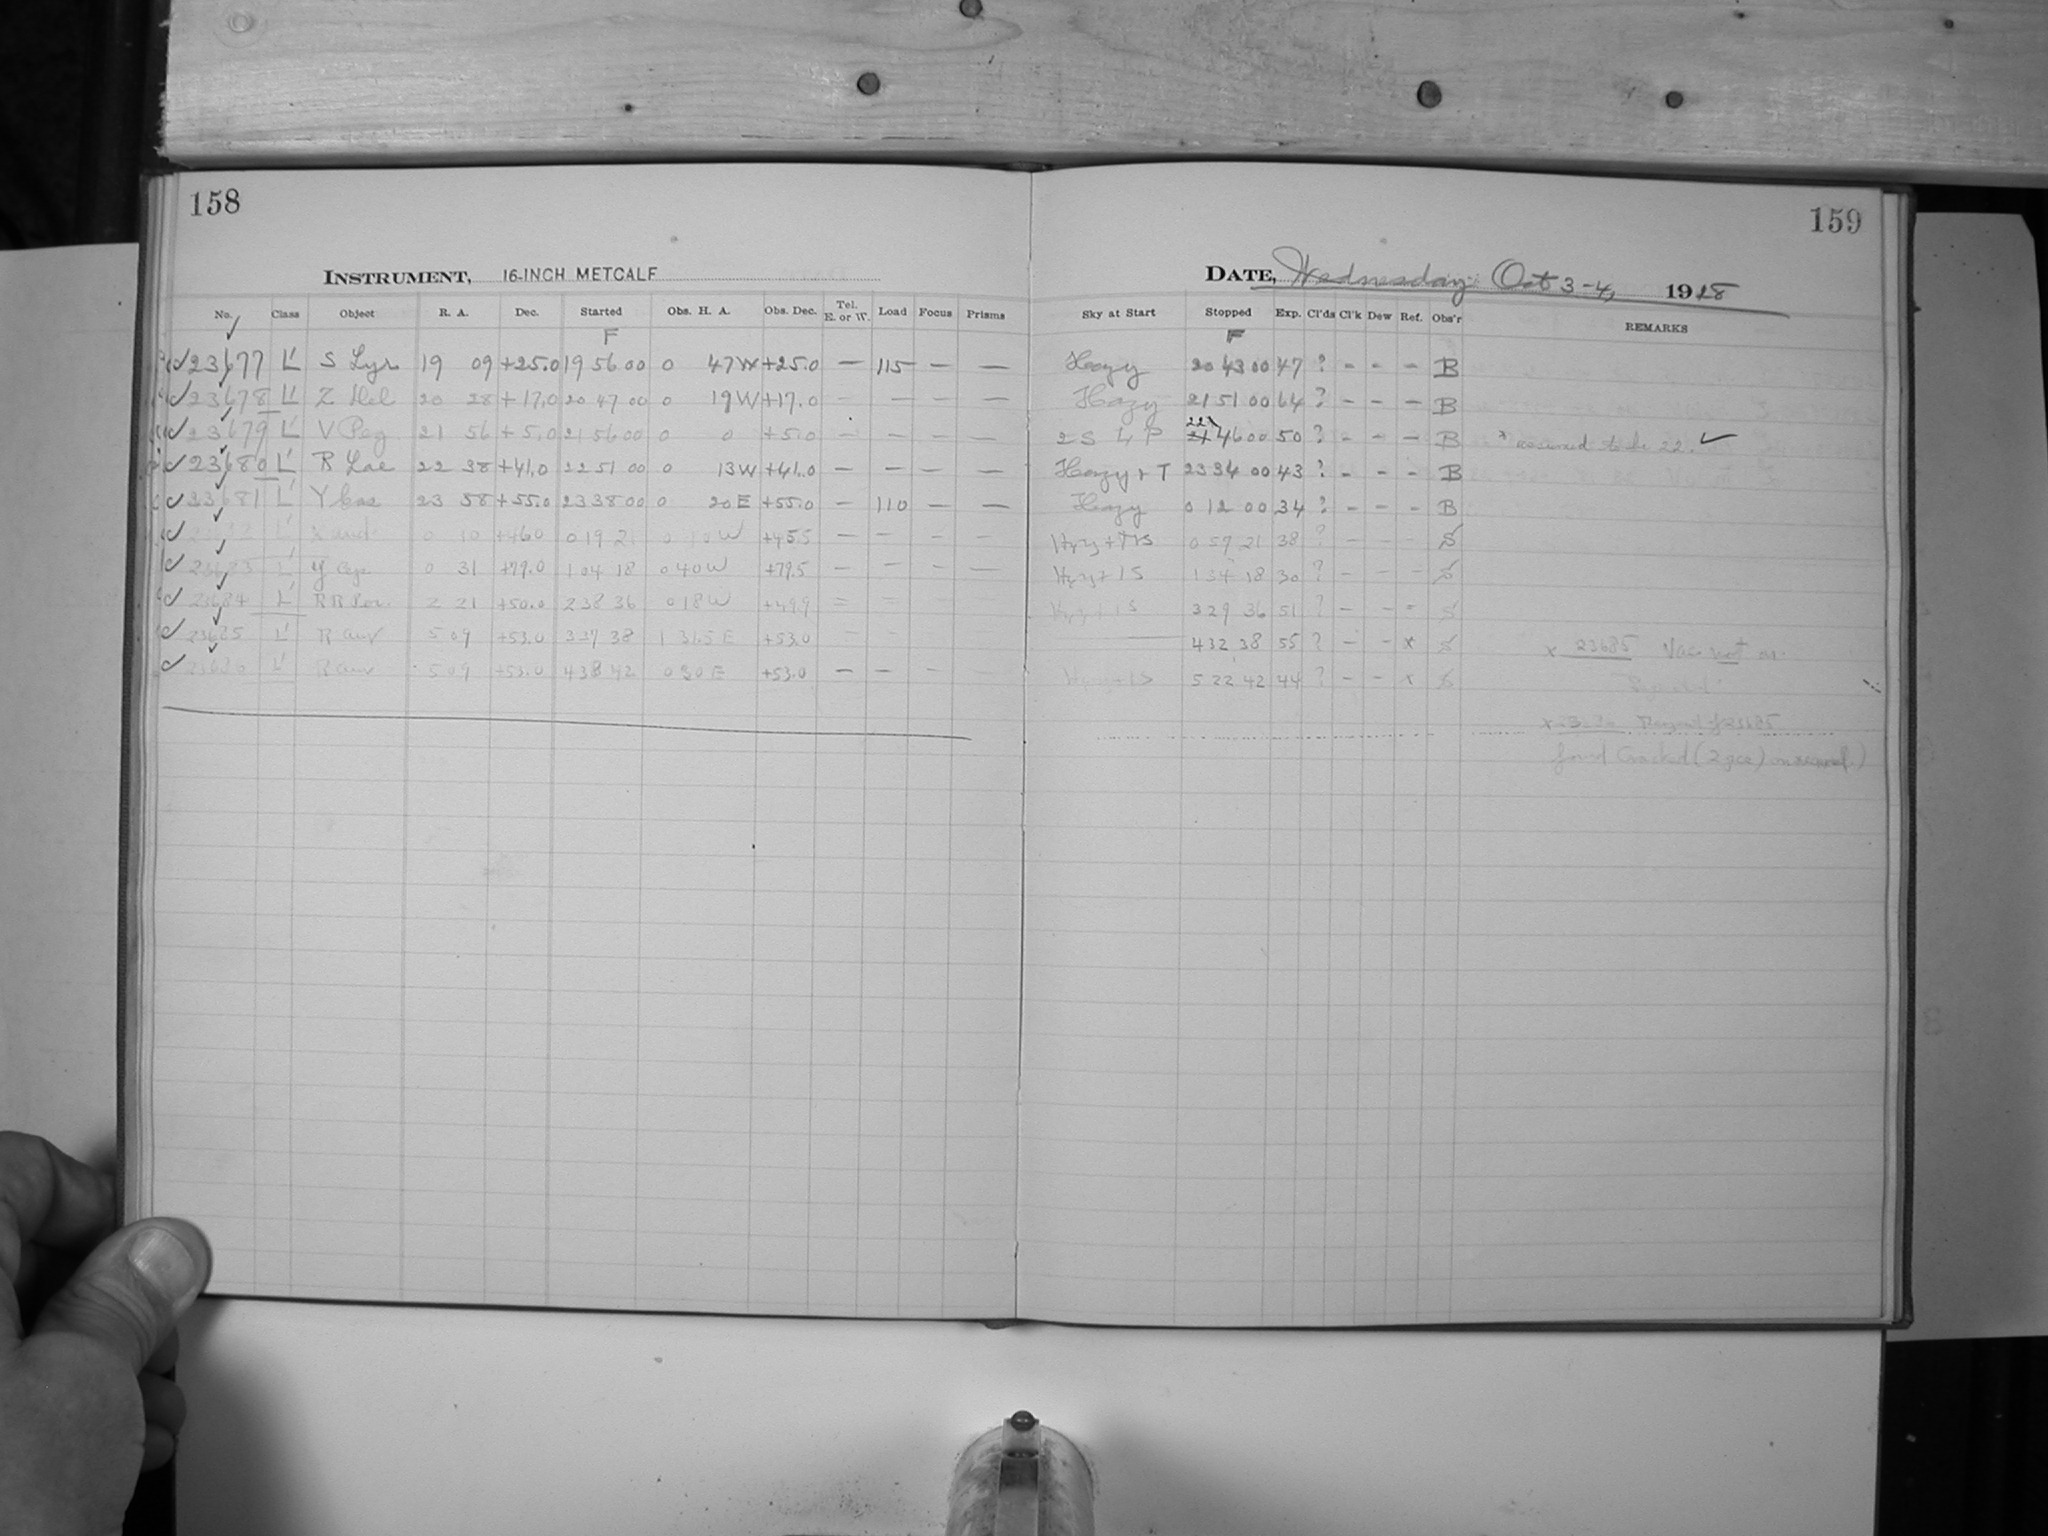 158
INSTRUMENT, 16-INCH METCALF
No. Class Object R. A. Dec. Started Obs. H. A. Obs. Dec. Tel. E. or W. Load Focus Prisms
F
✓ 23677 L' S Lyr 19 09 +25.0 19 56 00 0 47 W +25.0 — 115 — —
✓ 23678 L' Z Del 20 28 +17.0 20 47 00 0 19 W +17.0 — — — —
✓ 23679 L' V Peg 21 56 +5.0 21 56 00 0 0 +5.0 — — — —
✓ 23680 L' R Lac 22 38 +41.0 22 51 00 0 13 W +41.0 — — — —
✓ 23681 L' Y Cas 23 58 +55.0 23 38 00 0 20 E +55.0 — 110 — —
✓ L' 0 10 +46.0 0 19 21 W +45.5 — — — —
✓ 23683 L' Y Cep 0 31 +79.0 1 04 18 0 40 W +79.5 — — — —
✓ 23684 L' RR Per 2 21 +50.0 2 38 36 0 18 W +49.9 = = —
✓ 23685 L' R Aur 5 09 +53.0 3 37 38 1 36.5 E +53.0 — —
✓ 23686 L' R Aur 5 09 +53.0 4 38 42 0 30 E +53.0 — — — —
159
DATE, Wednesday Oct 3-4, 1918
Sky at Start Stopped Exp. Cl'ds Cl'k Dew Ref. Obs'r REMARKS
F
Hazy 20 43 00 47 ? - - - B
Hazy 21 51 00 64 ? - - - B
2 S 4 P 22 21 46 00 50 ? - - - B * assumed to be 22. ✓
Hazy + T 23 34 00 43 ? - - - B
Hazy 0 12 00 34 ? - - - B
0 57 21 38 ? - - - S
Hzy + 1 S 1 34 18 30 ? - - - S
Hzy + 1 S 3 29 36 51 ? - - - S
— 4 32 38 55 ? - - x S x 23685 Vac not on
Hzy + 1 S 5 22 42 44 ? - - x S
23685
found Cracked (2 pces) on removal.)